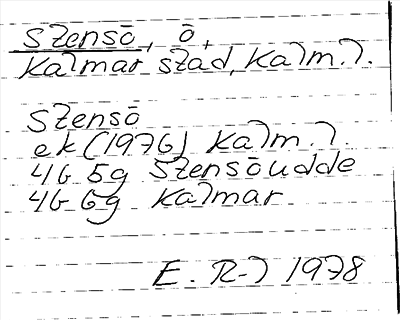 Stensö, ö,
Kalmar stad, Kalm. l.
Stensö
ek (1976) Kalm. l.
4G 5g Stensöudde
4G 6g Kalmar
E. R-l 1978